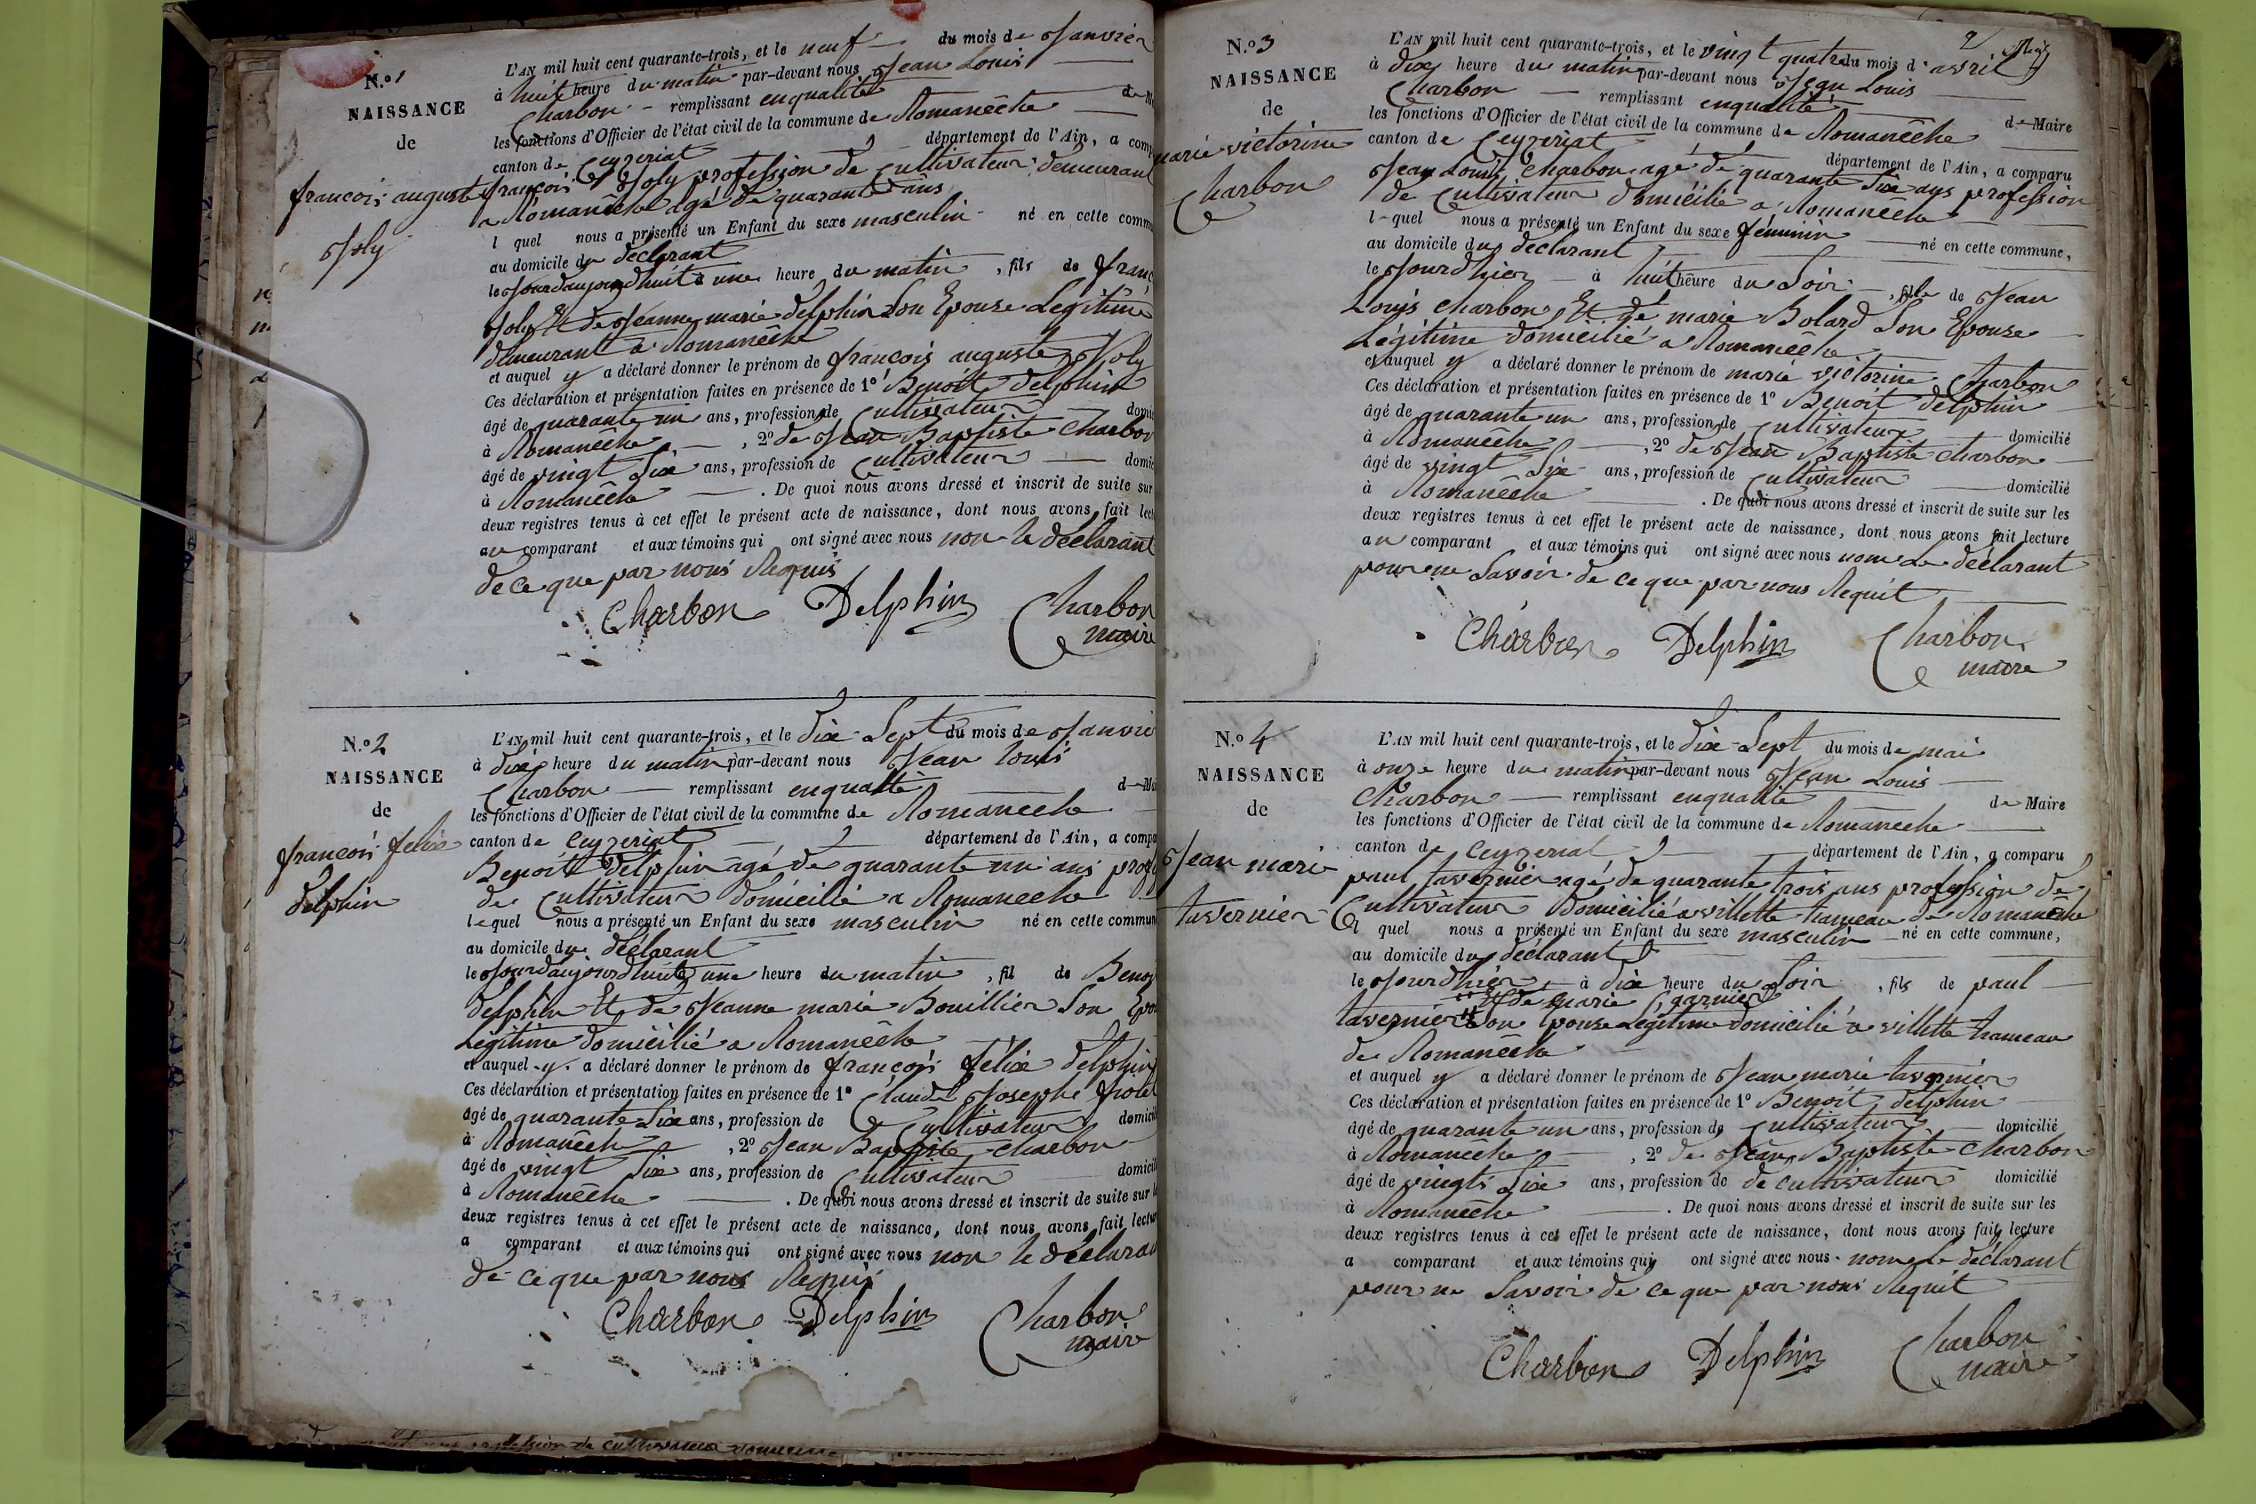 N.º 1
NAISSANCE
de
françois auguste
Joly
L'AN mil huit cent quarante-trois, et le neuf du mois de Janvier
à huit heure du matin par-devant nous Jean Louis
Charbon remplissant enqualité de
les fonctions d'Officier de l'état civil de la commune de Romanêche
canton de Ceyzeriat département de l'Ain, a
françois Joly profession de Cultivateur demeurant
a Romanêche agé de quarante ans
l quel nous a présenté un Enfant du sexe masculin né en cette
au domicile du déclarant
le Jourdaujourdhuit à une heure du matin, fils de
Joly Et de Jeanne marie delphin Son Epouse Légitime
demeurant à Romanêche
et auquel y a déclaré donner le prénom de françois auguste Joly
Ces déclaration et présentation faites en présence de 1º Benoit delphin
âgé de quarante un ans, profession de Cultivateur
à Romanêche, 2º de Jean Baptiste Charbon
âgé de vingt Six ans, profession de Cultivateur
à Romanêche. De quoi nous avons dressé et inscrit de suite sur
deux registres tenus à cet effet le présent acte de naissance, dont nous avons fait
au comparant et aux témoins qui ont signé avec nous non le déclarant
de ce que par nous Requis
Charbon Delphin Charbon
maire
N.º 2
NAISSANCE
de
françois felix
delphin
L'AN mil huit cent quarante-trois, et le dix Sept du mois de
à dix heure du matin par-devant nous Jean Louis
Charbon remplissant enqualité
les fonctions d'Officier de l'état civil de la commune de Romanêche
canton de Ceyzeriat département de l'Ain, a
Benoit Delphin âgé de quarante un ans
de Cultivateur domicilié a Romaneche
lequel nous a présenté un Enfant du sexe masculin né en cette
au domicile du déclarant
le Jourdaujourdhuit à une heure du matin, fil de
delphin Et de Jeanne marie Bouillier Son
Légitime domicilié a Romanêche
et auquel y a déclaré donner le prénom de françois félix delphin
Ces déclaration et présentation faites en présence de 1º Claude Josephe
âgé de quarante Six ans, profession de Cultivateur
à Romanêche, 2º Jean Baptiste Charbon
âgé de vingt Six ans, profession de Cultivateur
à Romanêche. De quoi nous avons dressé et inscrit de suite sur
deux registres tenus à cet effet le présent acte de naissance, dont nous avons fait
a comparant et aux témoins qui ont signé avec nous non le
de ce que par nous Requis
Charbon Delphin Charbon
maire
2
N.º 3
NAISSANCE
de
marie victorine
Charbon
L'AN mil huit cent quarante-trois, et le vingt quatre du mois d'avril
à dix heure du matin par-devant nous Jean Louis
Charbon remplissant enqualité de Maire
les fonctions d'Officier de l'état civil de la commune de Romanêche
canton de Ceyzeriat département de l'Ain, a comparu
Jean Louis Charbon agé de quarante Six ans profession
de Cultivateur domicilié a Romanêche
l quel nous a présenté un Enfant du sexe féminin né en cette commune,
au domicile du déclarant
le Jourdhier à huit heure du Soir, fille de Jean
Louis Charbon Et de marie Bolard Son Epouse
Légitime domicilié a Romanêche
et auquel y a déclaré donner le prénom de marie victorine Charbon
Ces déclaration et présentation faites en présence de 1º Benoit delphin
âgé de quarante un ans, profession de Cultivateur domicilié
à Romanêche, 2º de Jean Baptiste Charbon
âgé de vingt Six ans, profession de Cultivateur domicilié
à Romanêche. De quoi nous avons dressé et inscrit de suite sur les
deux registres tenus à cet effet le présent acte de naissance, dont nous avons fait lecture
au comparant et aux témoins qui ont signé avec nous nom Le déclarant
pour ne Savoir de ce que par nous Requit
Charbon Delphin Charbon
maire
N.º 4
NAISSANCE
de
Jean marie
tavernier
L'AN mil huit cent quarante-trois, et le dix Sept du mois de mai
à onze heure du matin par-devant nous Jean Louis
Charbon remplissant enqualité de Maire
les fonctions d'Officier de l'état civil de la commune de Romaneche
canton de Ceyzeriat département de l'Ain, a comparu
paul tavernier agé de quarante trois ans profession de
Cultivateur domicilié a villette hameau de Romanêche
l quel nous a présenté un Enfant du sexe masculin né en cette commune,
au domicile du déclarant
le Jourdhier à dix heure du Soir, fils de paul
Et de marie garnier
tavernier Son Epouse Légitime domicilié a villette hameau
de Romanêche
et auquel y a déclaré donner le prénom de Jean marie tavernier
Ces déclaration et présentation faites en présence de 1º Benoit delphin
âgé de quarante un ans, profession de Cultivateur domicilié
à Romanêche, 2º de Jean Baptiste Charbon
âgé de vingts Six ans, profession de de cultivateur domicilié
à Romanêche. De quoi nous avons dressé et inscrit de suite sur les
deux registres tenus à cet effet le présent acte de naissance, dont nous avons fait lecture
a comparant et aux témoins qui ont signé avec nous nom Le déclarant
pour ne Savoir de ce que par nous Requit
Charbon Delphin Charbon
maire